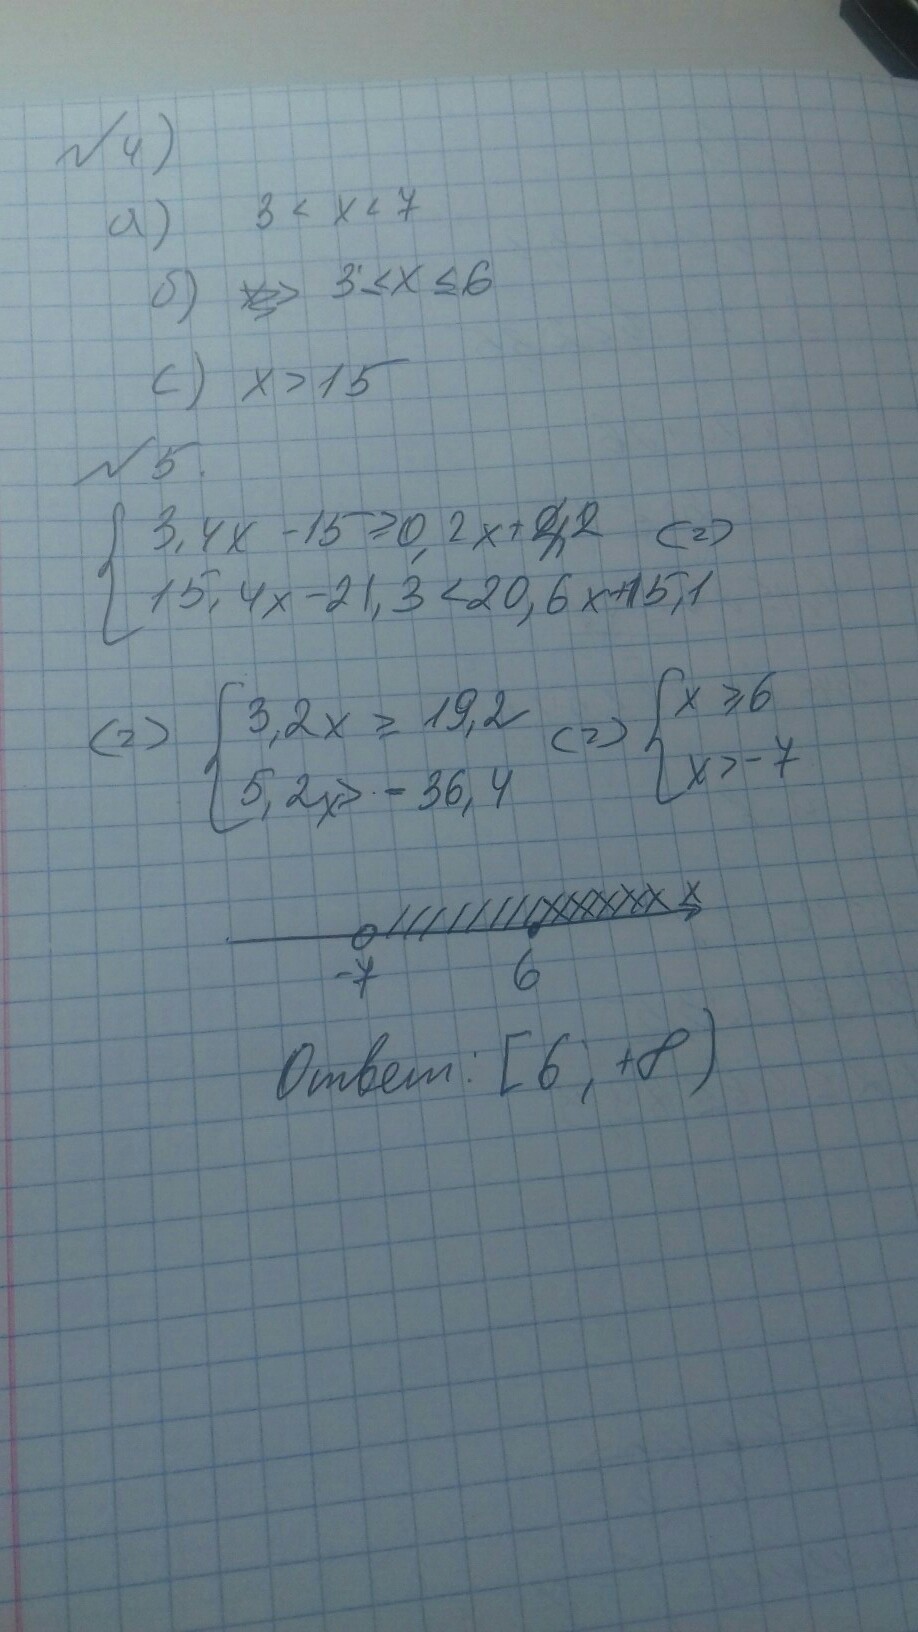 №4)
а) 3 < x < 7
б) 3 ≤ x ≤ 6
с) x > 15
№5.
{ 3,4x - 15 ≥ 0,2x + 4,2 <=>
15,4x - 21,3 < 20,6x + 15,1
<=> { 3,2x ≥ 19,2 <=> { x ≥ 6
5,2x > -36,4 x > -7
x
-7 6
Ответ: [6; +∞)